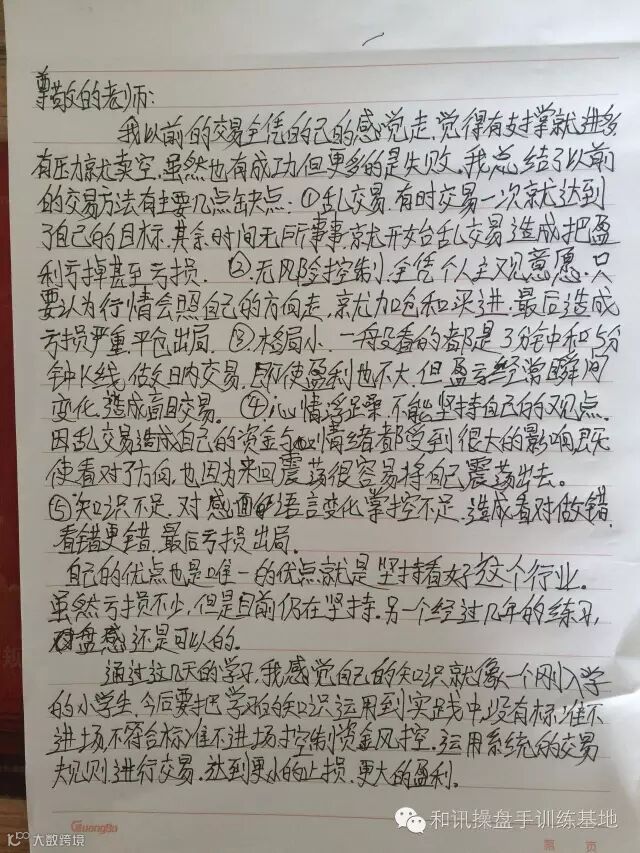 尊敬的老师:
我以前的交易全凭的自己的感觉走,觉得有支撑就进多
有压力就卖空.虽然也有成功但更多的是失败.我总结了以前
的交易方法有主要几点缺点:①乱交易.有时交易一次就达到
了自己的目标.其余时间无所事事就开始乱交易造成把盈
利亏掉甚至亏损.②.无风险控制.全凭个人主观意愿.只
要认为行情会照自己的方向走,就加仓和买进.最后造成
亏损严重.平仓出局.③.格局小.一般没看的都是3分钟和5分
钟K线.做日内交易.即使盈利也不大.但盈亏经常瞬间
变化.造成盲目交易.④.心情浮躁.不能坚持自己的观点.
因乱交易造成自己的资金与心情绪者都受到很大的影响.既
使看对了方向,也因为来回震荡很容易将自己震荡出去。
⑤知识不足.对盘面的语言变化掌控不足.造成看对做错.
看错更错.最后亏损出局。
自己的优点也是唯一的优点就是坚持看好这个行业。
虽然亏损不少,但是目前仍在坚持.另一个经过几年的练习,
盘感还是可以的。
通过这几天的学习.我感觉自己的知识就像一个刚入学
的小学生.今后要把学习的知识运用到实践中.没有标准不
进场.不符合标准不进场.控制资金风控.运用系统的交易
规则进行交易.达到更小的止损.更大的盈利。
GuangBo
和讯操盘手训练基地
大数跨境
第 页